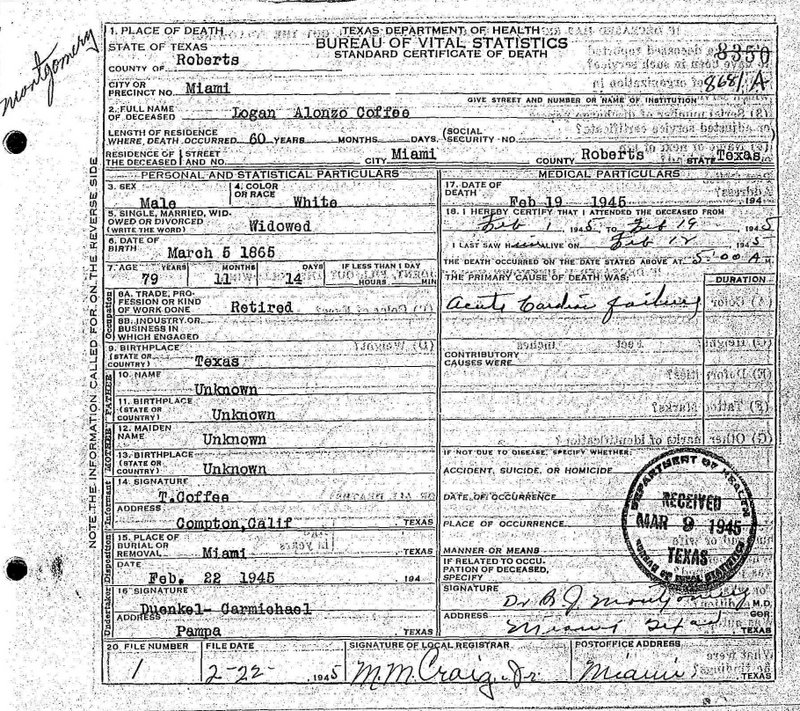 Montgomery
1. PLACE OF DEATH
STATE OF TEXAS
COUNTY OF Roberts
TEXAS DEPARTMENT OF HEALTH
BUREAU OF VITAL STATISTICS
STANDARD CERTIFICATE OF DEATH
8350
8681 A
CITY OR
PRECINCT NO. Miami
GIVE STREET AND NUMBER OR NAME OF INSTITUTION
2. FULL NAME
OF DECEASED Logan Alonzo Coffee
LENGTH OF RESIDENCE
WHERE DEATH OCCURRED 60 YEARS MONTHS DAYS (SOCIAL
SECURITY NO
RESIDENCE OF { STREET
THE DECEASED { AND NO. CITY Miami COUNTY Roberts STATE Texas
NOTE: THE INFORMATION CALLED FOR ON THE REVERSE SIDE
PERSONAL AND STATISTICAL PARTICULARS
3. SEX
Male
4. COLOR
OR RACE
White
5. SINGLE, MARRIED, WID-
OWED OR DIVORCED
(WRITE THE WORD) Widowed
6. DATE OF
BIRTH March 5 1865
7. AGE YEARS MONTHS DAYS IF LESS THAN 1 DAY
79 11 14 HOURS MIN
Occupation
8A. TRADE, PRO-
FESSION OR KIND
OF WORK DONE Retired
8B. INDUSTRY OR
BUSINESS IN
WHICH ENGAGED
9. BIRTHPLACE
(STATE OR
COUNTRY) Texas
FATHER
10. NAME
Unknown
11. BIRTHPLACE
(STATE OR
COUNTRY) Unknown
MOTHER
12. MAIDEN
NAME Unknown
13. BIRTHPLACE
(STATE OR
COUNTRY) Unknown
Informant
14. SIGNATURE
T.Coffee
ADDRESS
Compton,Calif TEXAS
Undertaker Disposition
15. PLACE OF
BURIAL OR
REMOVAL Miami TEXAS
DATE
Feb. 22 1945 194
16 SIGNATURE
Duenkel- Carmichael
ADDRESS
Pampa TEXAS
MEDICAL PARTICULARS
17. DATE OF
DEATH Feb 19 1945 194
18. I HEREBY CERTIFY THAT I ATTENDED THE DECEASED FROM
Feb 1 1945 TO Feb 19 1945
I LAST SAW him ALIVE ON Feb 12 1945
THE DEATH OCCURRED ON THE DATE STATED ABOVE AT 5:00 A M.
THE PRIMARY CAUSE OF DEATH WAS: DURATION
Acute Cardiac failure
CONTRIBUTORY
CAUSES WERE
IF NOT DUE TO DISEASE, SPECIFY WHETHER:
ACCIDENT, SUICIDE, OR HOMICIDE
DATE OF OCCURRENCE
PLACE OF OCCURRENCE
MANNER OR MEANS
IF RELATED TO OCCU-
PATION OF DECEASED,
SPECIFY
SIGNATURE
Dr B J Montgomery M.D.
ADDRESS
Miami Texas TEXAS
DEPARTMENT OF HEALTH
RECEIVED
MAR 9 1945
TEXAS
BUREAU OF VITAL STATISTICS
20 FILE NUMBER
1
FILE DATE
2-22- 1945
SIGNATURE OF LOCAL REGISTRAR
M.M. Craig, Jr.
POSTOFFICE ADDRESS
Miami TEXAS